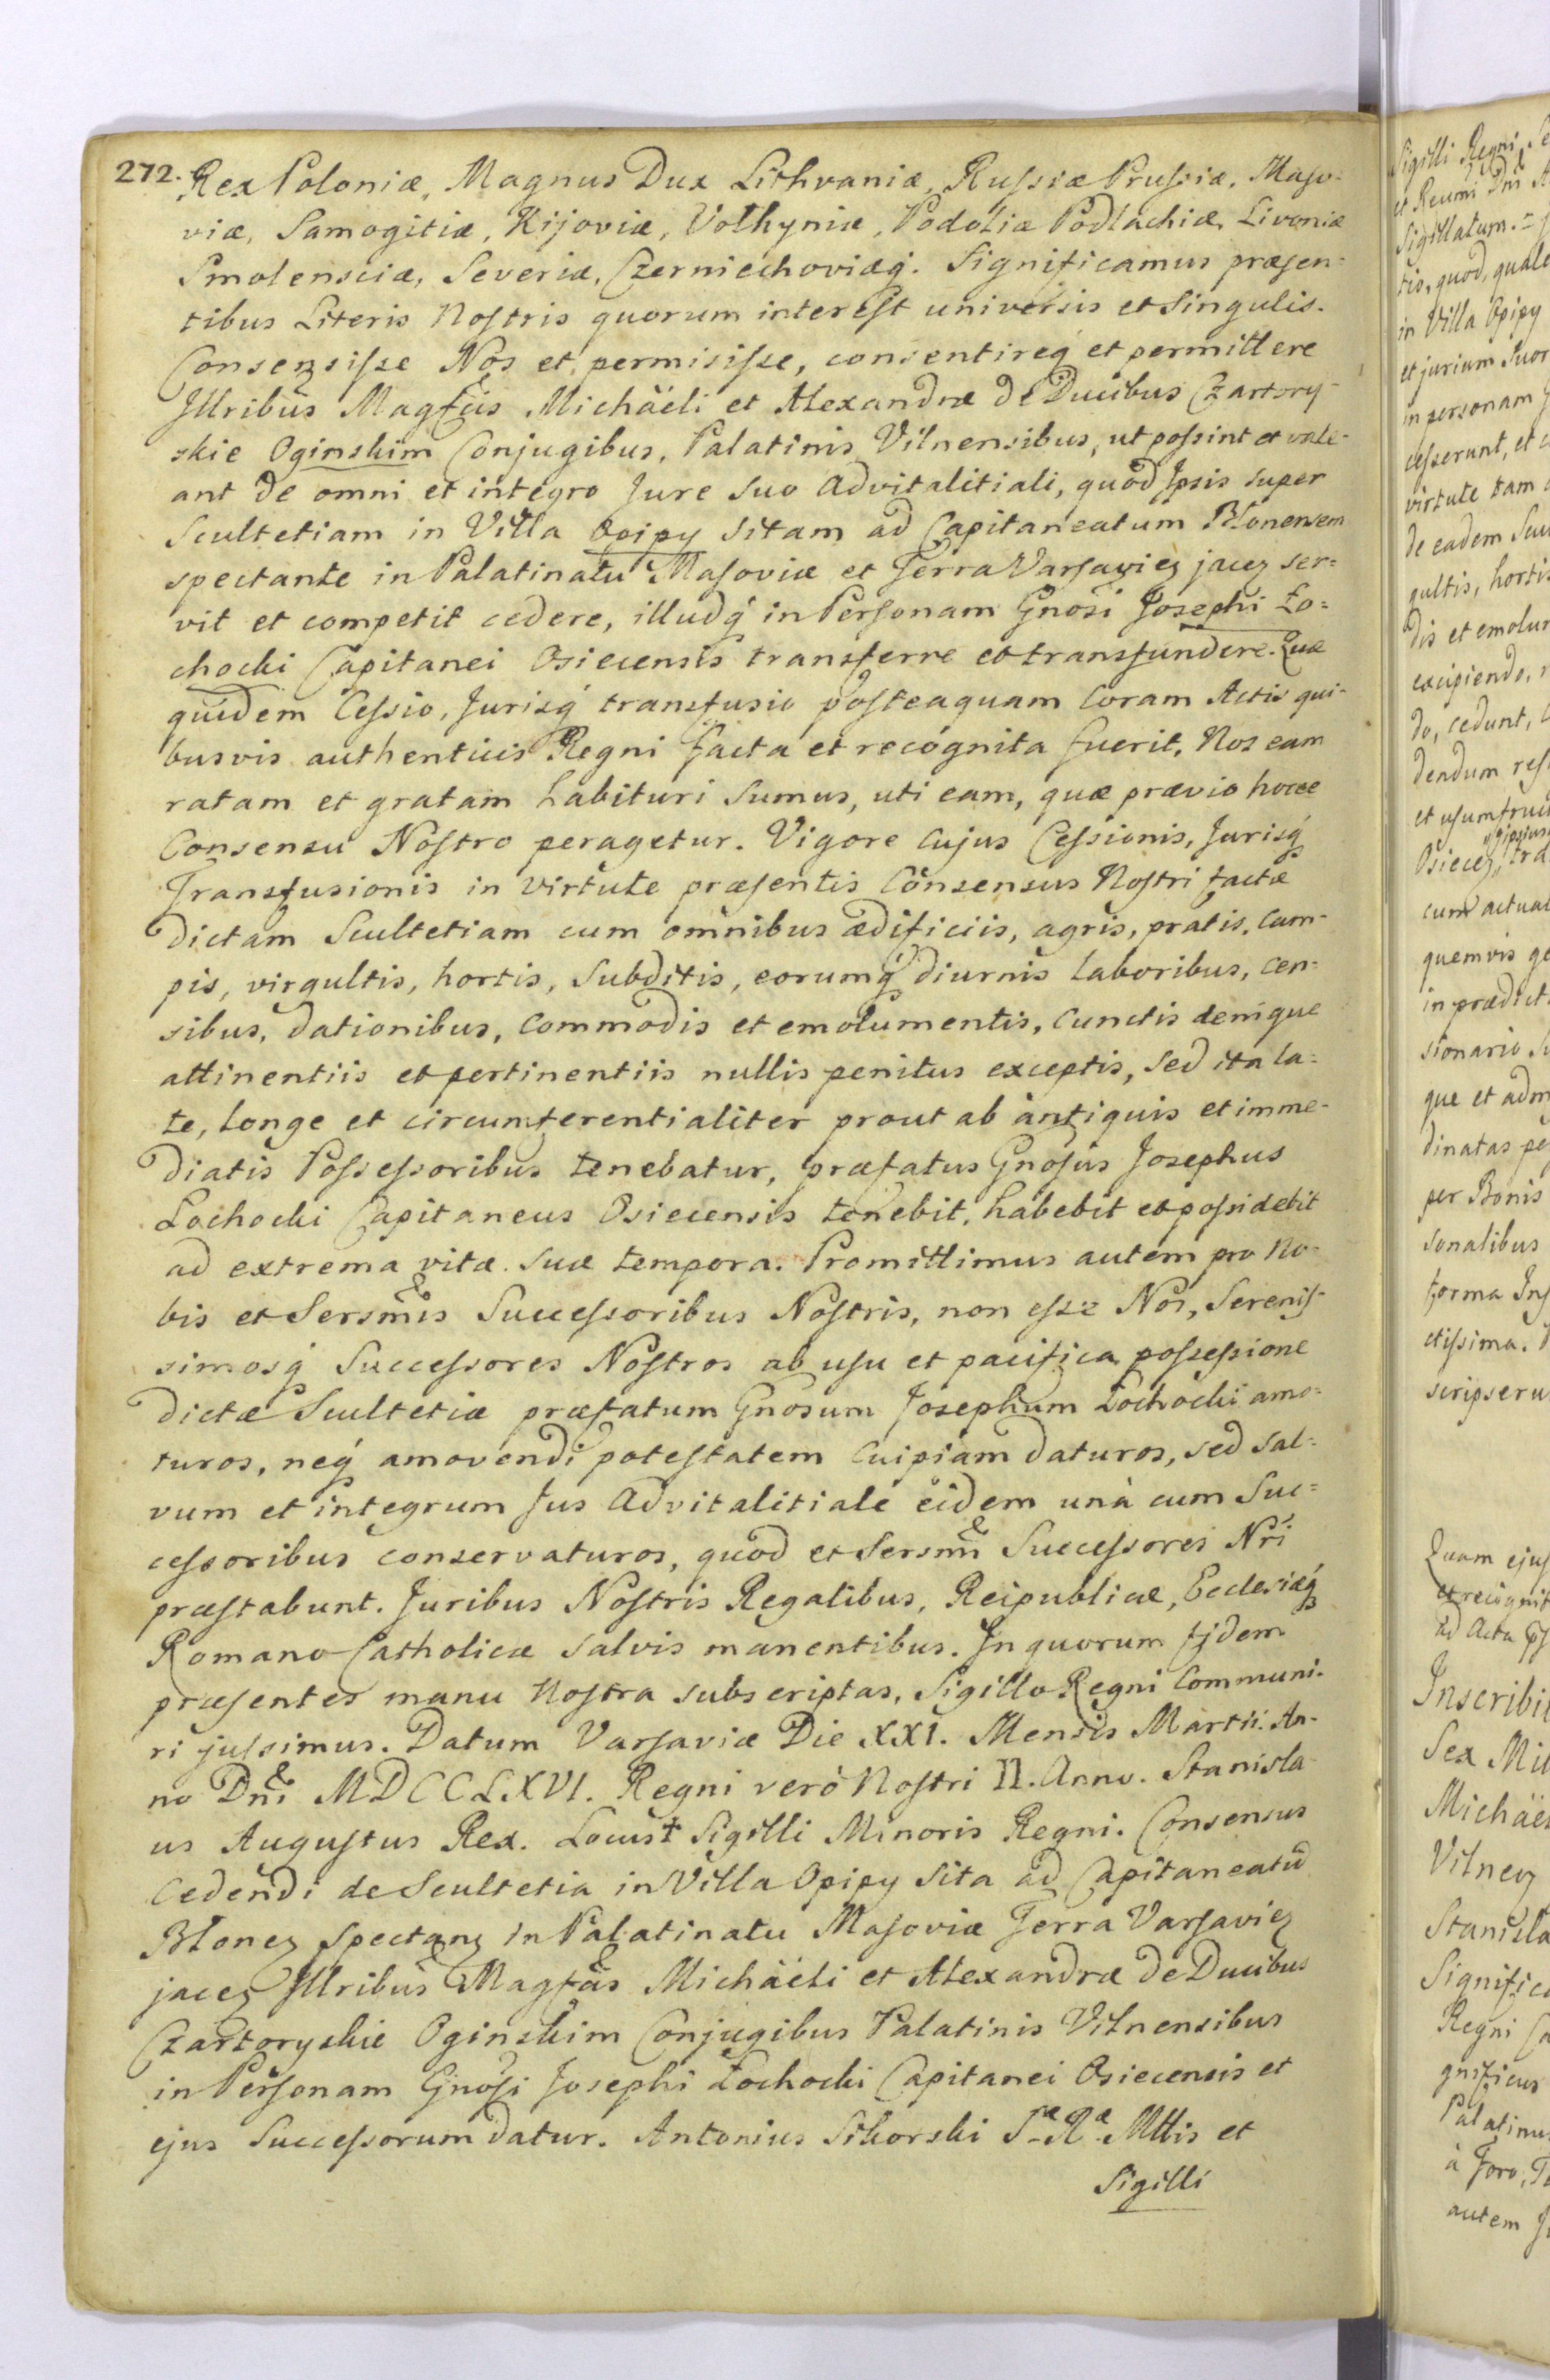 272. Rex Poloniæ, Magnus Dux Lithvaniæ, Russiæ Prussiæ, Maso-
viæ, Samogitiæ, Kijoviæ, Volhyniæ, Podoliæ Podlachiæ, Livoniæ
Smolensciæ, Severiæ, Czerniechoviæq́. Significamus præsen-
tibus Literis Nostris quorum interest universis et Singulis.
Consensisse Nos et permisisse, consentireq́ et permittere
Illribus Magfcis Michäeli et Alexandræ de Ducibus Czartory-
skie Oginskim Conjugibus, Palatinis Vilnensibus, ut possint et vale-
ant de omni et integro Jure Suo Advitalitiali, quod Ipsis super
Scultetiam in Villa Opipy sitam ad Capitaneatum Błonensem
spectante in Palatinatu Masoviæ et Terra Varsavieȝ jaceȝ ser=
vit et competit cedere, illudq́ in Personam Gnosi Josephi Ło=
chocki Capitanei Osiecensis transferre et transfundere. Quæ
quidem Cessio, Jurisq́ transfusio posteaquam Coram Actis qui-
busvis authenticis Regni facta et recognita fuerit, Nos eam
ratam et gratam habituri sumus, uti eam, quæ prævio hocce
Consensu Nostro peragetur. Vigore cujus Cessionis, Jurisq́
Transfusionis in virtute præsentis Consensus Nostri factæ
dictam Scultetiam cum omnibus ædificiis, agris, pratis, cam-
pis, virgultis, hortis, Subditis, eorumq́ diurnis laboribus, cen=
sibus, dationibus, commodis et emolumentis, cunctis denique
attinentiis et pertinentiis nullis penitus exceptis, sed ita la=
te, longe et circumferentialiter prout ab antiquis et imme-
diatis Possessoribus tenebatur, præfatus Gnosus Josephus
Łochocki Capitaneus Osiecensis tenebit, habebit et possidebit
ad extrema vitæ suæ tempora. Promittimus autem pro No-
bis et Sersmis Successoribus Nostris, non esse Nos, Serenis-
simosq́ Successores Nostros ab usu et pacifica possessione
dictæ Scultetiæ præfatum Gnosum Josephum Łochocki amo=
turos, neq́ amovendi potestatem cuipiam daturos, sed sal=
vum et integrum Jus Advitalitiale eidem unà cum Suc=
cessoribus conservaturos, quod et Sersmi Successores Nri
præstabunt. Juribus Nostris Regalibus, Reipublicæ, Ecclesiæq́
Romano Catholicæ salvis manentibus. In quorum fidem
præsentes manu Nostra subscriptas, Sigillo Regni Communi-
ri jussimus. Datum Varsaviæ Die XXI. Mensis Martii. An-
no Dni MDCCLXVI. Regni verò Nostri II. Anno. Stanisla-
us Augustus Rex. Locus ✝ Sigilli Minoris Regni. Consensus
Cedendi de Scultetia in Villa Opipy sita ad Capitaneatū
Błoneȝ spectanȝ in Palatinatu Masoviæ Terra Varsavieȝ
jaceȝ Illribus Magfcis Michäeli et Alexandræ de Ducibus
Czartoryskie Oginskim Conjugibus Palatinis Vilnensibus
in Personam Gnosi Josephi Łochocki Capitanei Osiecensis et
ejus Successorum datur. Antonius Sikorski Sæ Ræ Mttis et
Sigilli
Sigilli Regni
et Reumi Dni
Sigillatum.
tis, quod, quale
in Villa Opipy
et jurium suor
in personam
cesserunt, et
virtute tam
de eadem Scu
gultis, hortis
dis et emolu
excipiendo,
do, cedunt,
dendum res
et usumfruc
Osieceȝ, tra
cum actual
quemvis ge
in prædict
sionario
que et adm
dinatas
per Bonis
sonalibus
forma Ins
ctissima.
scripseru
Quam ejus
et recognit
ad Acta
Inscribi
Sex Mil
Michäe
Vilneȝ
Stanisla
Signific
Regni
gnificus
Palatinus
à Foro,
autem